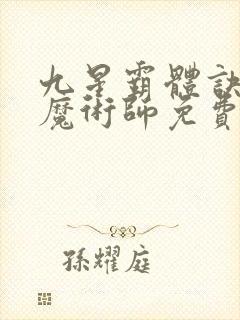 九星霸體訣
魔術師免費
孫耀庭